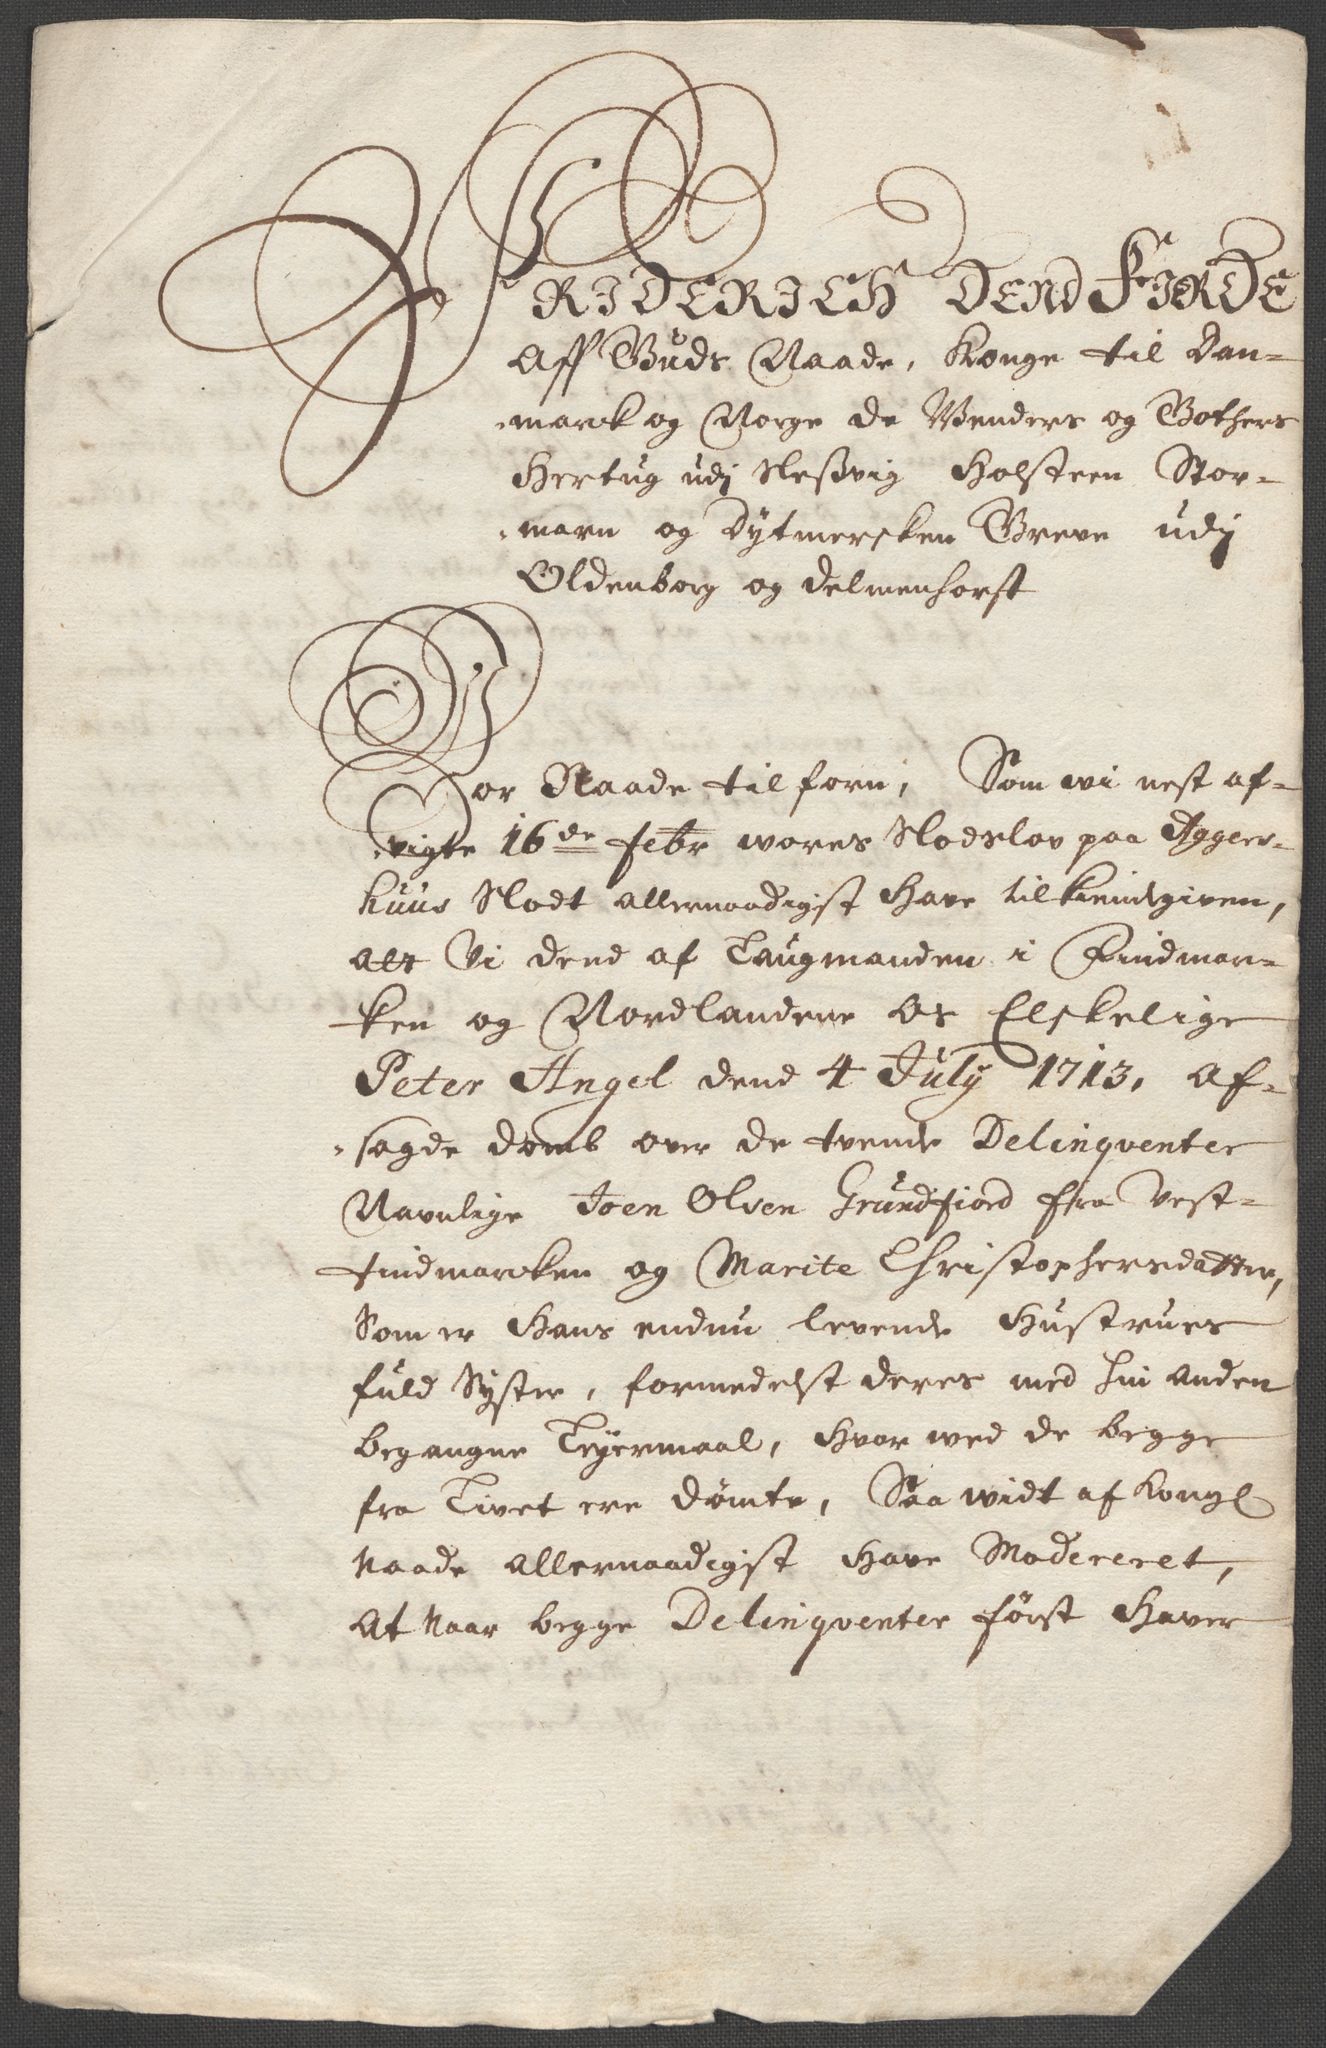 FRIDERICH DEND FIERDE
Aff Guds Naade, Konge til Dan-
marck og Norge de Wenders og Gothers
Hertug udj Slesvig Holsteen Stor-
marn og Dytmersken Greve udj
Oldenborg og Delmenhorst
Vor Naade tilforn, Som wi nest af-
vigte 16de Febr wores Slodslov paa Agger-
huus Slodt allernaadigst have tilkiendgiven,
att Vi dend af Laugmanden i Findmar-
ken og Nordlandene Os Elskelige
Peter Angel dend 4 July 1713, af-
sagde domb over de tvende Delinqventer
Navnlige Joen Olsen Grundfiord fra Vest-
findmarcken og Marite Christophersdatter,
Som er Hans endnu levende Hustrues
fuld Syster, formedelst deres med hin anden
begangne Leyermaal, hvor wed de begge
fra Livet ere dømte, Saa widt af Kongl
Naade allernaadigst have Modereret,
At Naar begge Delinqventer først haver